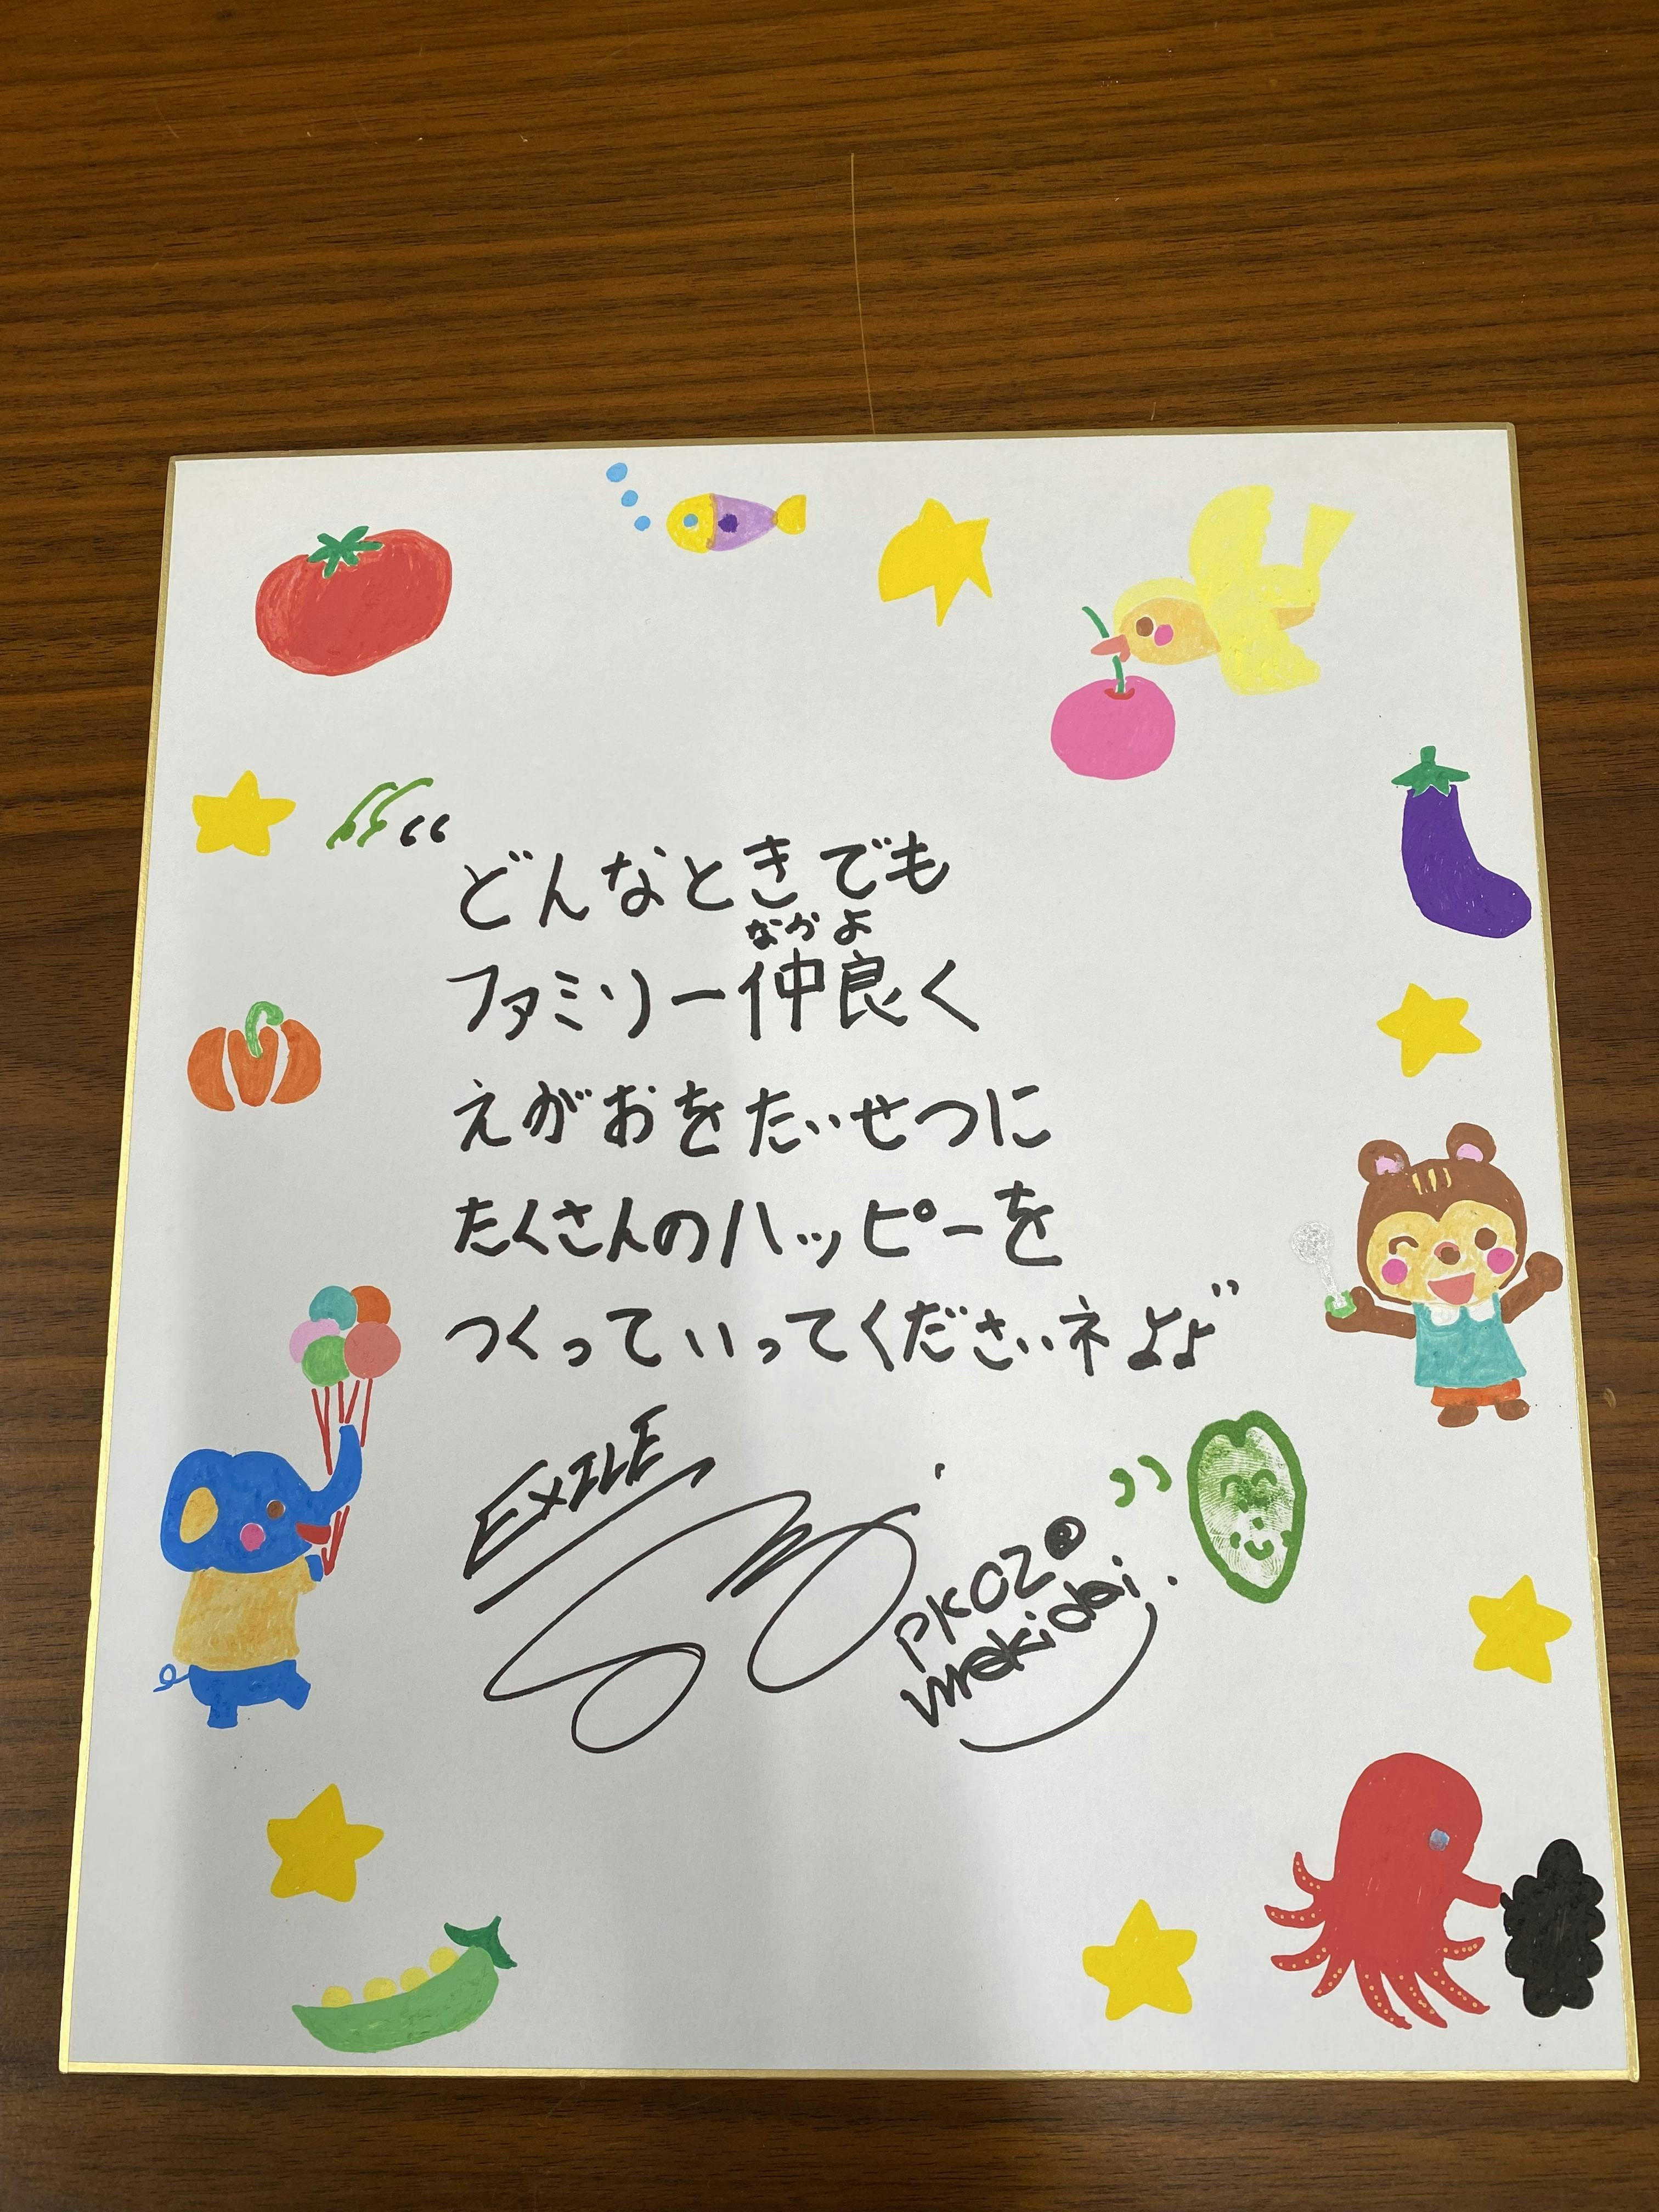 “どんなときでも
なか よ
ファミリー仲良く
えがおをたいせつに
たくさんのハッピーを
つくっていってくださいネ♪♪”
EXILE
PKCZ®
makidai.